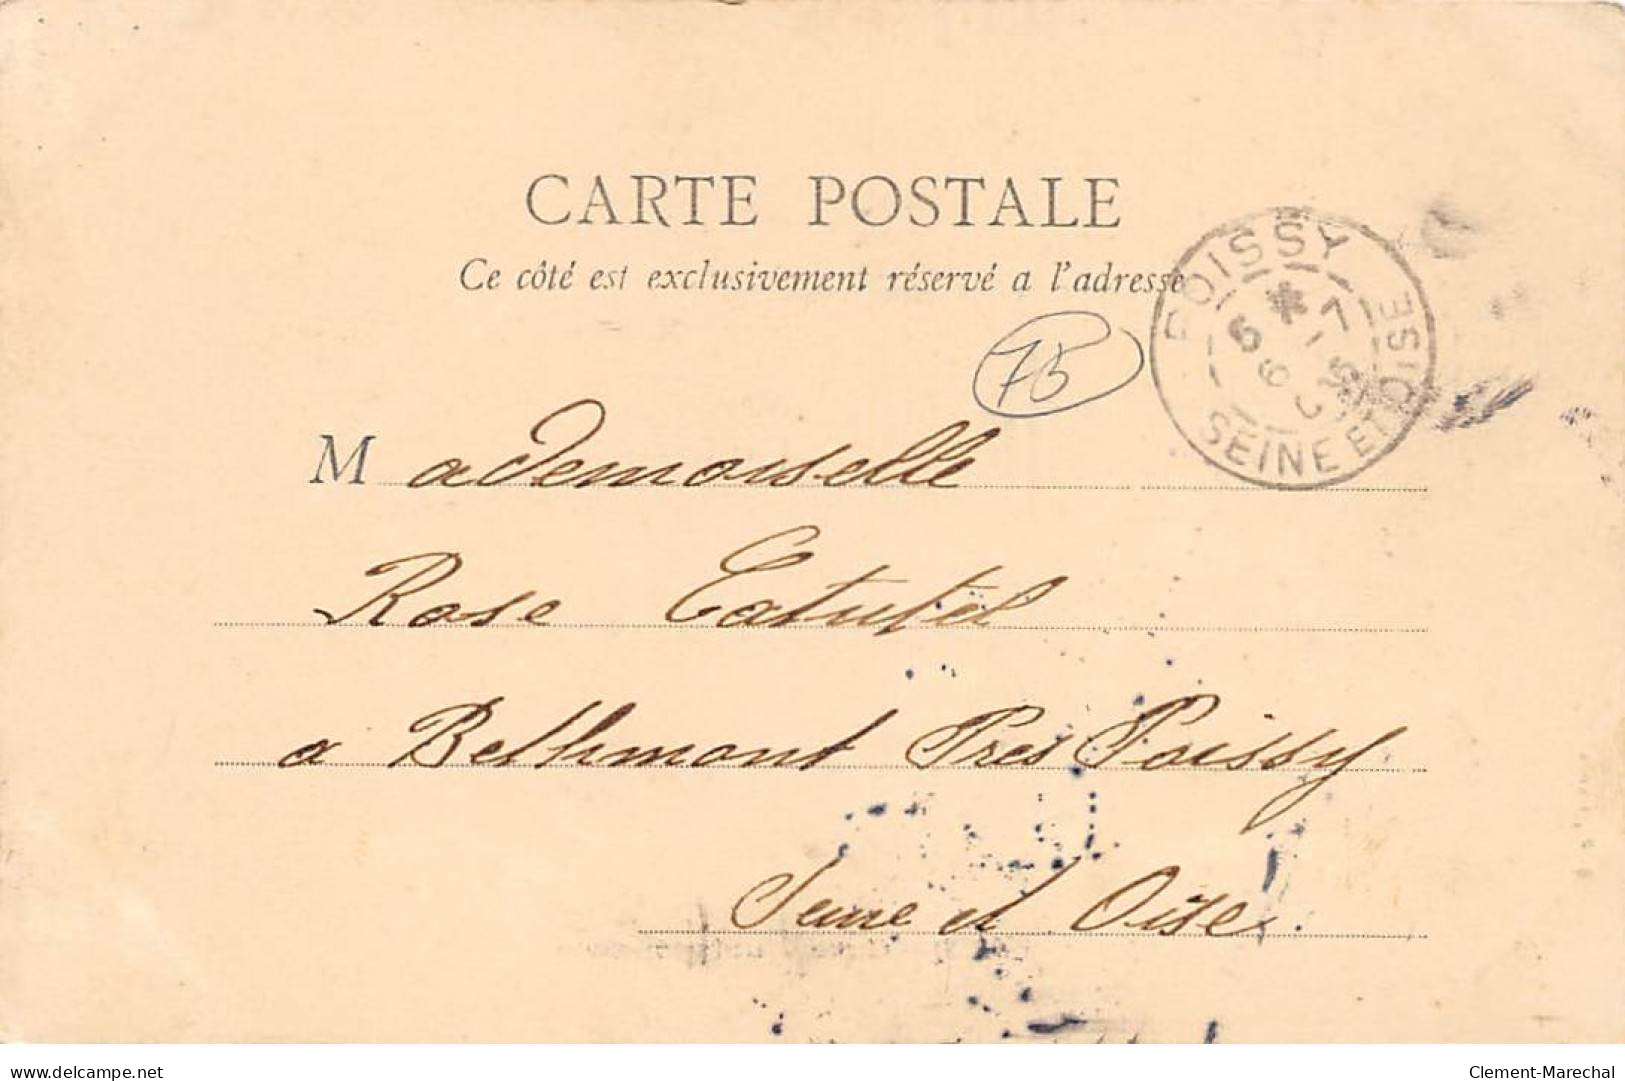 CARTE POSTALE
Ce côté est exclusivement réservé a l'adresse
POISSY
6 * -7
6 05
SEINE ET OISE
75
Mademoiselle
Rose Catutel
a Bethmont Pres Poissy
Seine et Oise.
delcampe.net
Clement-Marechal